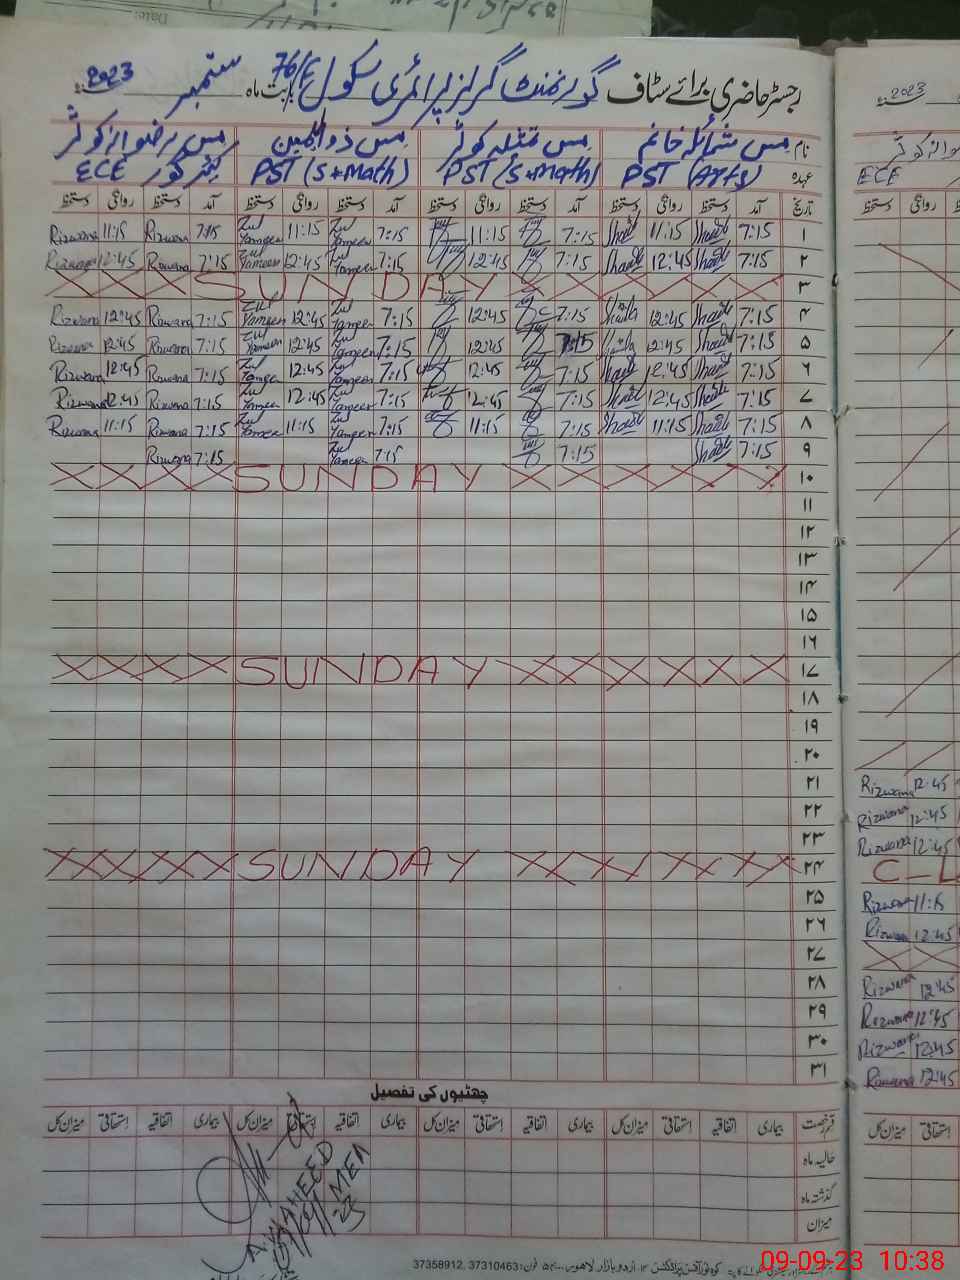 Date:
رجسٹر حاضری برائے سٹاف گورنمنٹ گرلز پرائمری سکول 76/E بابت ماہ ستمبر سنہ 2023
نام مس شمائلہ خانم مس کوثر مس ذوالیمین مس رضوانہ کوثر
عہدہ PST (Arts) PST (S+Math) PST (S+Math) ECE
تاریخ آمد دستخط روانگی دستخط آمد دستخط روانگی دستخط آمد دستخط روانگی دستخط آمد دستخط روانگی دستخط
۱ 7:15 11:15 7:15 11:15 7:15 Zul Yameen 11:15 Zul Yameen 7:15 Rizwana 11:15 Rizwana
۲ 7:15 12:45 7:15 12:45 7:15 Zul Yameen 12:45 Zul Yameen 7:15 Rizwana 12:45 Rizwana
۳ SUNDAY
۴ 7:15 12:45 7:15 12:45 7:15 Zul Yameen 12:45 Zul Yameen 7:15 Rizwana 12:45 Rizwana
۵ 7:15 12:45 7:15 12:45 7:15 Zul Yameen 12:45 Zul Yameen 7:15 Rizwana 12:45 Rizwana
۶ 7:15 12:45 7:15 12:45 7:15 Zul Yameen 12:45 Zul Yameen 7:15 Rizwana 12:45 Rizwana
۷ 7:15 12:45 7:15 12:45 7:15 Zul Yameen 12:45 Zul Yameen 7:15 Rizwana 12:45 Rizwana
۸ 7:15 11:15 7:15 11:15 7:15 Zul Yameen 11:15 Zul Yameen 7:15 Rizwana 11:15 Rizwana
۹ 7:15 7:15 7:15 Zul Yameen 7:15 Rizwana
۱۰ SUNDAY
۱۱
۱۲
۱۳
۱۴
۱۵
۱۶
۱۷ SUNDAY
۱۸
۱۹
۲۰
۲۱
۲۲
۲۳
۲۴ SUNDAY
۲۵
۲۶
۲۷
۲۸
۲۹
۳۰
۳۱
چھٹیوں کی تفصیل
قسم رخصت بیماری اتفاقیہ استحقاقی میزان کل بیماری اتفاقیہ استحقاقی میزان کل بیماری اتفاقیہ استحقاقی میزان کل بیماری اتفاقیہ استحقاقی میزان کل
حالیہ ماہ
گذشتہ ماہ
میزان
MEA
اردو بازار لاہور فون: 37310463, 37358912
سنہ 2023
ECE
دستخط روانگی
Rizwana 12:45
Rizwana 12:45
Rizwana 12:45
C-L
Rizwana 11:15
Rizwana 12:45
Rizwana 12:45
Rizwana 12:45
Rizwana 12:45
Rizwana 12:45
میزان کل استحقاقی
09-09-23 10:38